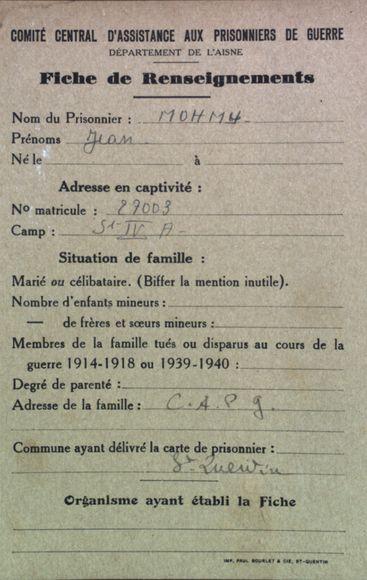 COMITÉ CENTRAL D'ASSISTANCE AUX PRISONNIERS DE GUERRE
DÉPARTEMENT DE L'AISNE
Fiche de Renseignements
Nom du Prisonnier :
Prénoms Jean
Né le à
Adresse en captivité :
No matricule : 29003
Camp : St IV A
Situation de famille :
Marié ou célibataire. (Biffer la mention inutile).
Nombre d'enfants mineurs :
— de frères et sœurs mineurs :
Membres de la famille tués ou disparus au cours de la
guerre 1914-1918 ou 1939-1940 :
Degré de parenté :
Adresse de la famille : C.A P g.
Commune ayant délivré la carte de prisonnier :
St Quentin
Organisme ayant établi la Fiche
IMP. PAUL BOURLET & CIE, ST-QUENTIN